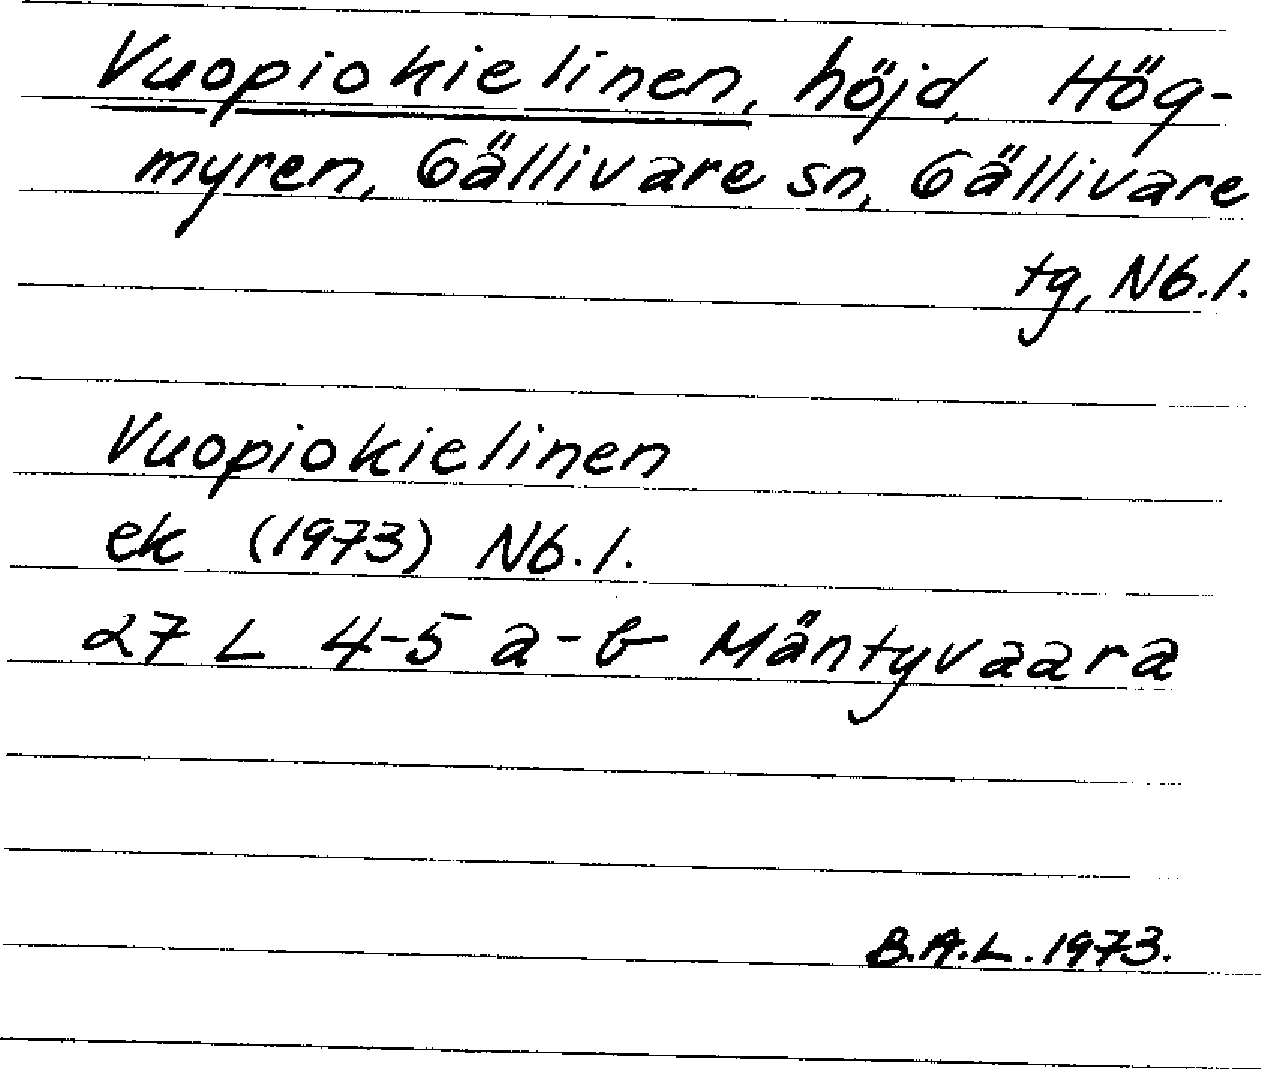 Vuopiokielinen, höjd, Hög-
myren, Gällivare sn, Gällivare
tg, Nb.l.
Vuopiokielinen
ek (1973) Nb.l.
27 L 4-5 a-b Mäntyvaara
B.A.L. 1973.